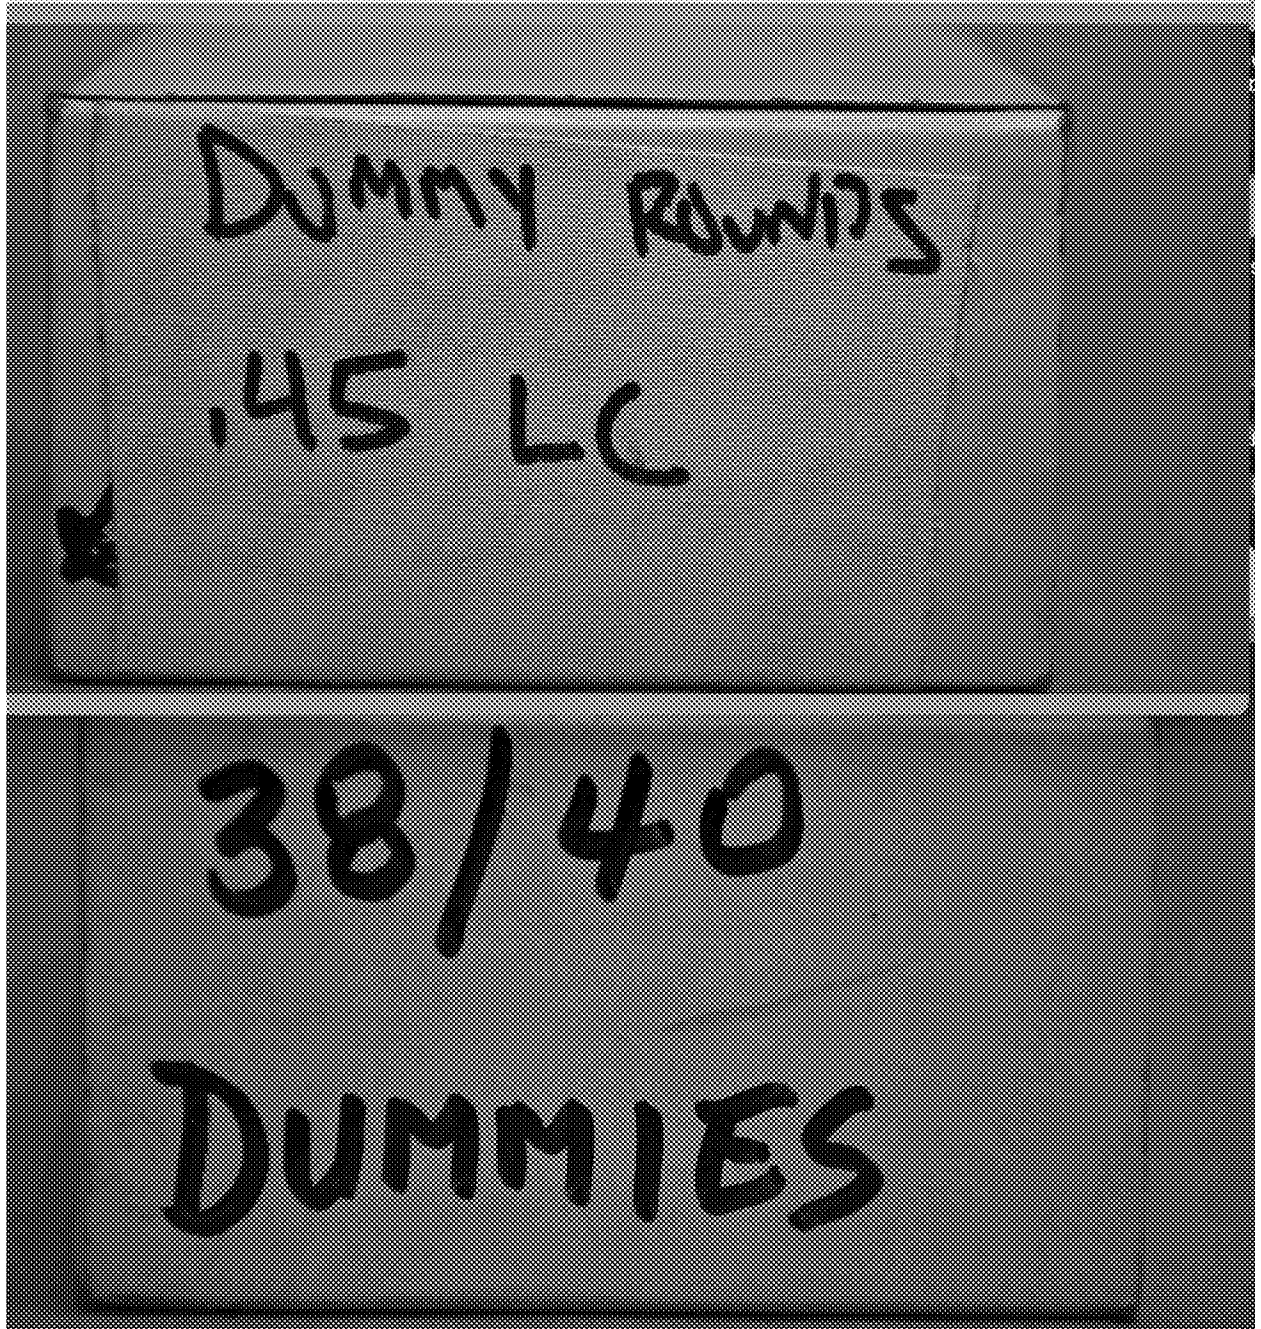 DUMMY ROUNDS
.45 LC
38/40
DUMMIES